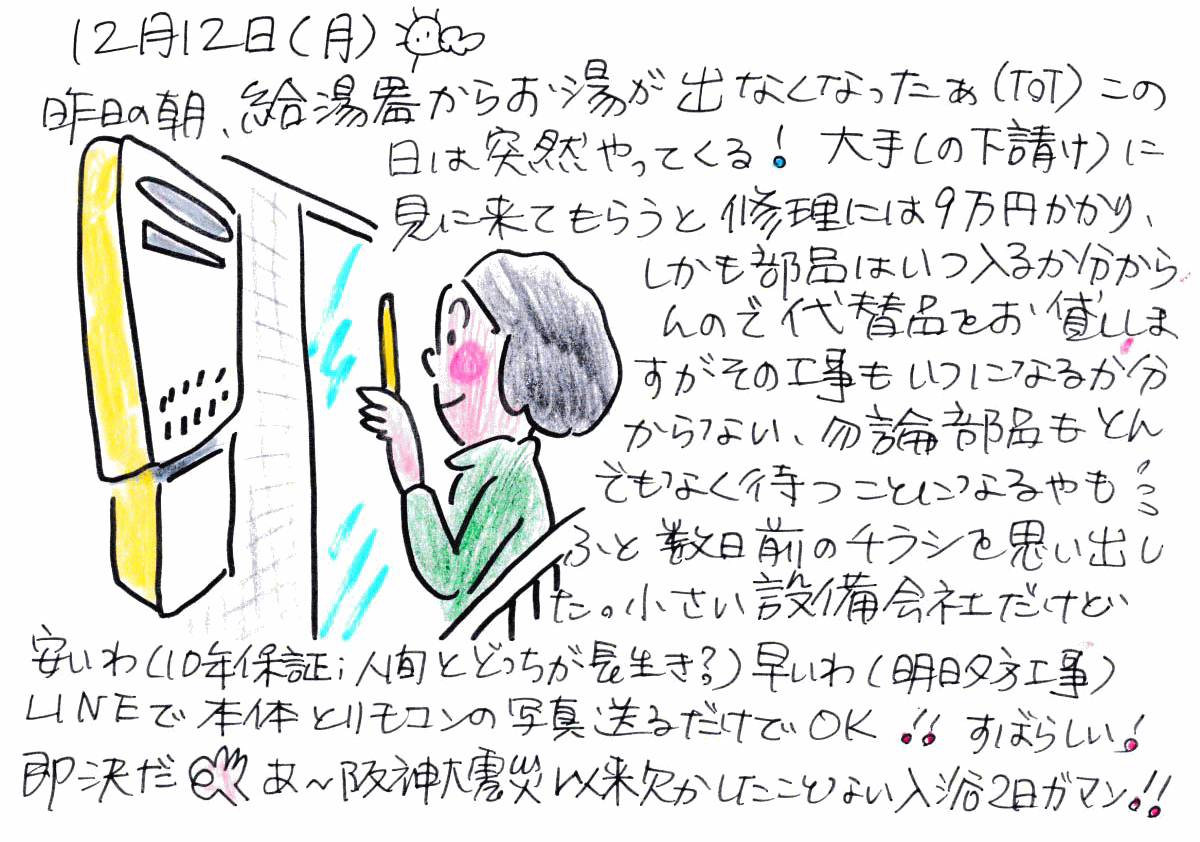 12月12日(月)
昨日の朝、給湯器からお湯が出なくなったぁ(ToT)この
日は突然やってくる!大手(の下請け)に
見に来てもらうと修理には9万円かかり、
しかも部品はいつ入るか分から
んので代替品をお貸ししま
すがその工事もいつになるか分
からない、勿論部品もとん
でもなく待つことになるやも
ふと数日前のチラシを思い出し
た。小さい設備会社だけど
安いわ(10年保証;人間とどっちが長生き?)早いわ(明日夕方工事)
LINEで本体とリモコンの写真送るだけでOK!!すばらしい!
即決だ あ~阪神大震災以来欠かしたことない入浴2日ガマン!!